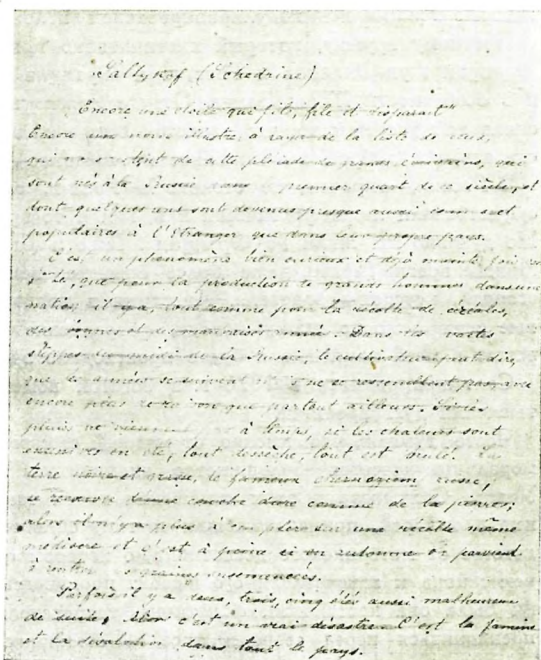 Saltykof (Schedrine)
Encore une étoile qui file, file et disparait"
Encore un nom illustre à rayer de la liste de ceux,
qui nous de cette pleiade de jeunes écrivains, qui
sont nés à la Russie dans le premier quart de ce siècle, et
dont quelques uns sont devenus presque aussi et
populaires à l'Etranger que dans leur propre pays.
C'est un phénomène bien curieux et déjà mainte fois
que pour la production de grands hommes dans une
nation il y a, tout comme pour la récolte de céréales,
des bonnes et des mauvaises années. Dans les vastes
steppes du midi de la Russie, le cultivateur peut dire,
que les années se suivent et ne se ressemblent pas, avec
encore plus de raison que partout ailleurs. Si les
pluies ne viennent pas à temps, si les chaleurs sont
excessives en été, tout dessèche, tout est brulé. La
terre noire et grasse, le fameux chernoziom russe,
se recouvre d'une couche dure comme de la pierre;
alors il n'y a plus à compter sur une récolte même
médiocre et c'est à peine si en automne on parvient
à rentrer graines ensemencées.
Parfois il y a deux, trois, cinq étés aussi malheureux
de suite; Alors c'est un vrai désastre. C'est la famine
et la désolation dans tout le pays.